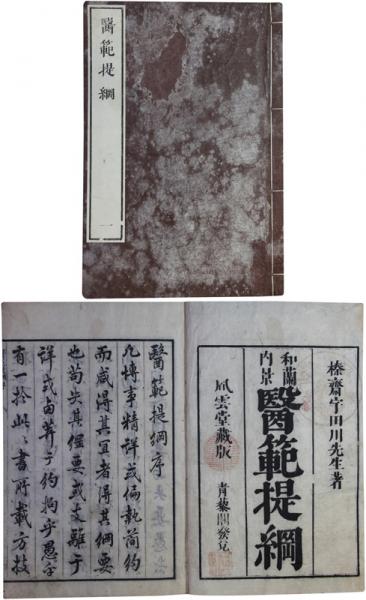 醫範提綱
一
榛齋宇田川先生著
和蘭
内景
醫範提綱
風雲堂藏版
青藜閣發兌
醫範提綱序
凡博事精詳或偏執簡約
而咸得其宜者得其綱要
也苟失其綱要或支離于
詳或鹵莽于約拘乎愚乎
有一於此〻書所載方技